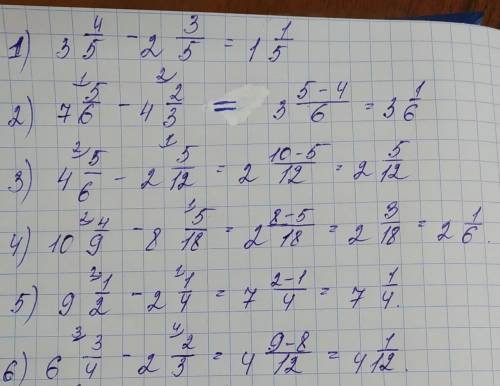 1) 3 4/5 - 2 3/5 = 1 1/5
2) 7 5/6 ¹ - 4 2/3 ² = 3 (5-4)/6 = 3 1/6
3) 4 5/6 ² - 2 5/12 ¹ = 2 (10-5)/12 = 2 5/12
4) 10 4/9 ² - 8 5/18 ¹ = 2 (8-5)/18 = 2 3/18 = 2 1/6.
5) 9 1/2 ² - 2 1/4 ¹ = 7 (2-1)/4 = 7 1/4.
6) 6 3/4 ³ - 2 2/3 ⁴ = 4 (9-8)/12 = 4 1/12.